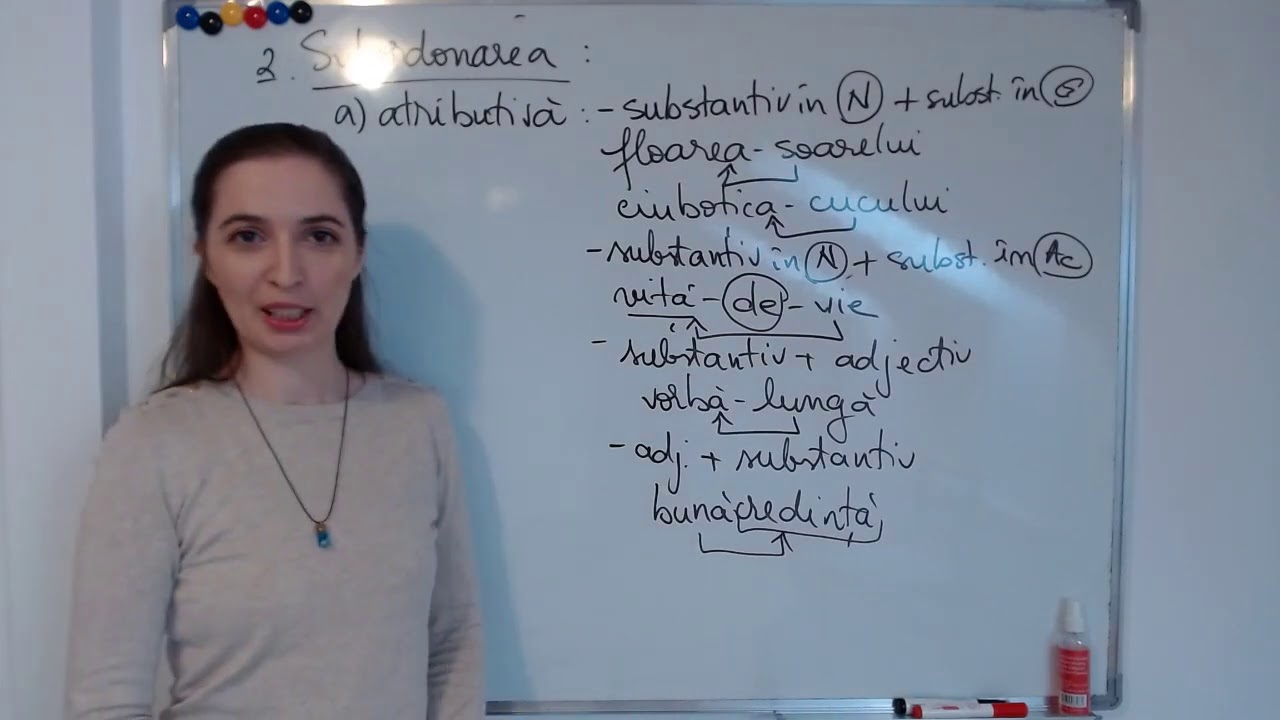 2. Subordonarea :
a) atributivă : - substantiv în N + subst. în G
floarea-soarelui
ciubotica-cucului
- substantiv în N + subst. în Ac
viță-de-vie
- substantiv + adjectiv
vorbă-lungă
- adj. + substantiv
bunăcredință